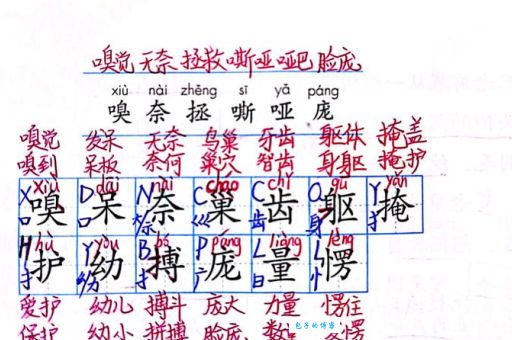 嗅觉 无奈 拯救 嘶哑 哑巴 脸庞
xiù nài zhěng sī yā páng
嗅 奈 拯 嘶 哑 庞
嗅觉 发呆 无奈 鸟巢 牙齿 躯体 掩盖
嗅到 呆板 奈何 巢穴 智齿 身躯 掩护
X xiù D dāi N nài C cháo C chǐ Q qū Y yǎn
口 嗅 口 呆 大 奈 巛 巢 齿 齿 身 躯 扌 掩
H hù Y yòu B bó P páng L liàng L lèng
扌 护 幺 幼 扌 搏 广 庞 日 量 忄 愣
爱护 幼儿 搏斗 庞大 力量 愣住
保护 幼小 拼搏 脸庞 数量 发愣
包子的博客